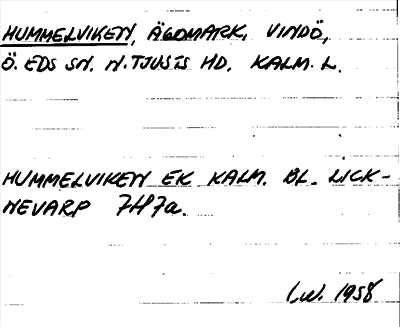 HUMMELVIKEN, ÄGOMARK, VINDÖ,
Ö. EDS SN. N. TJUSTS HD. KALM. L.
HUMMELVIKEN EK KALM. BL. LICK-
NEVARP 7H7a.
I.W. 1958